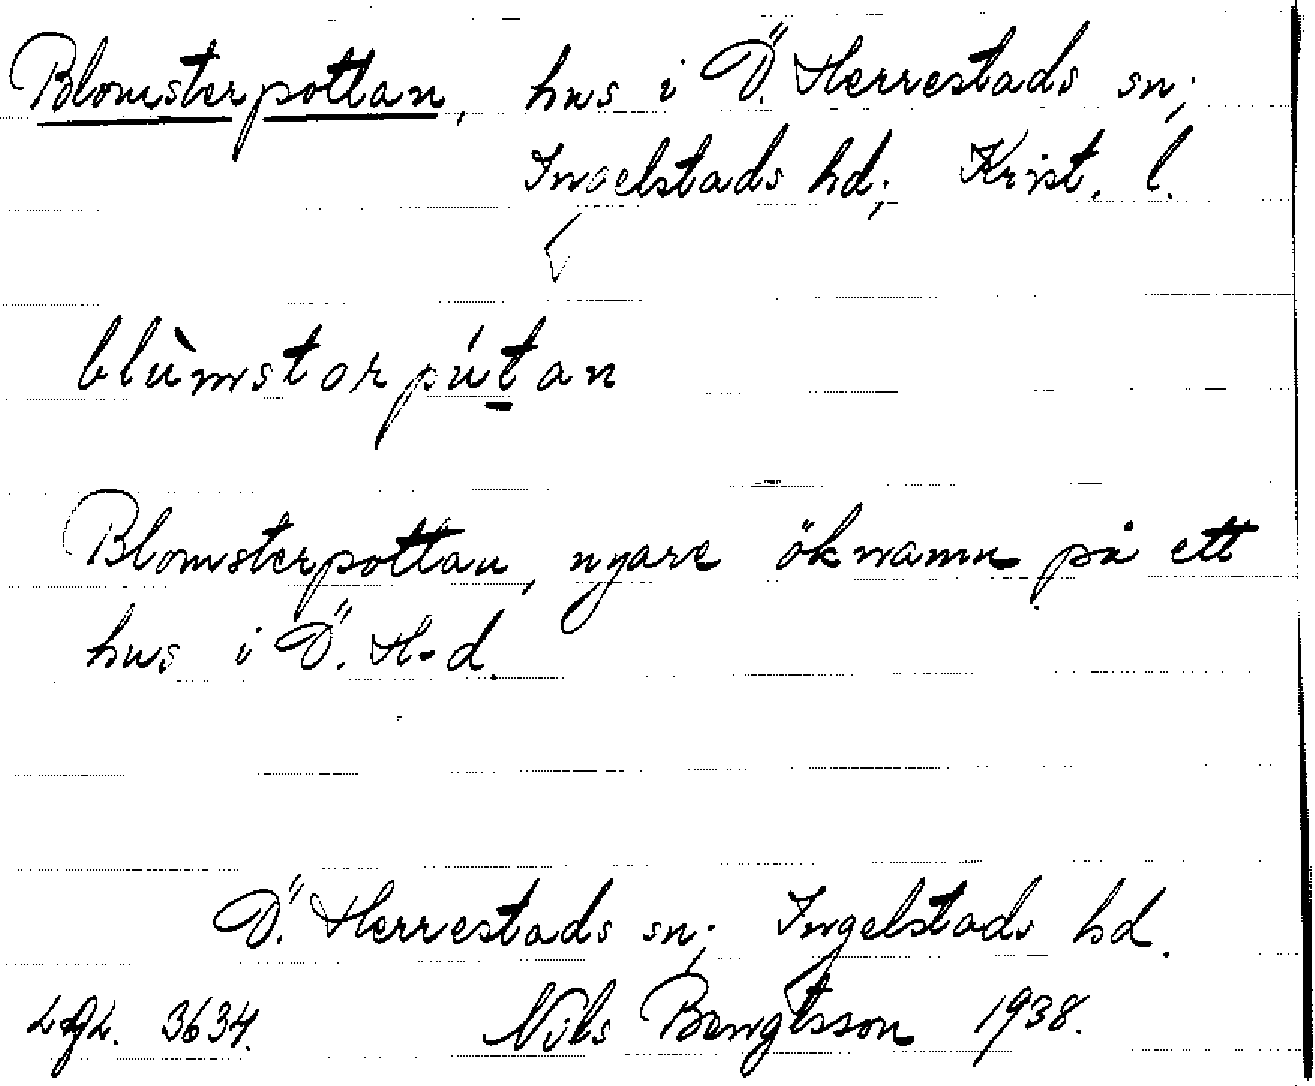 Blomsterpottan, hus i Ö. Herrestads sn;
Ingelstads hd; Krist. l.
blùmstorpút̲an
Blomsterpottan, nyare öknamn på ett
hus i Ö. H-d.
Ö. Herrestads sn; Ingelstads hd.
3634. Nils Bengtsson 1938.